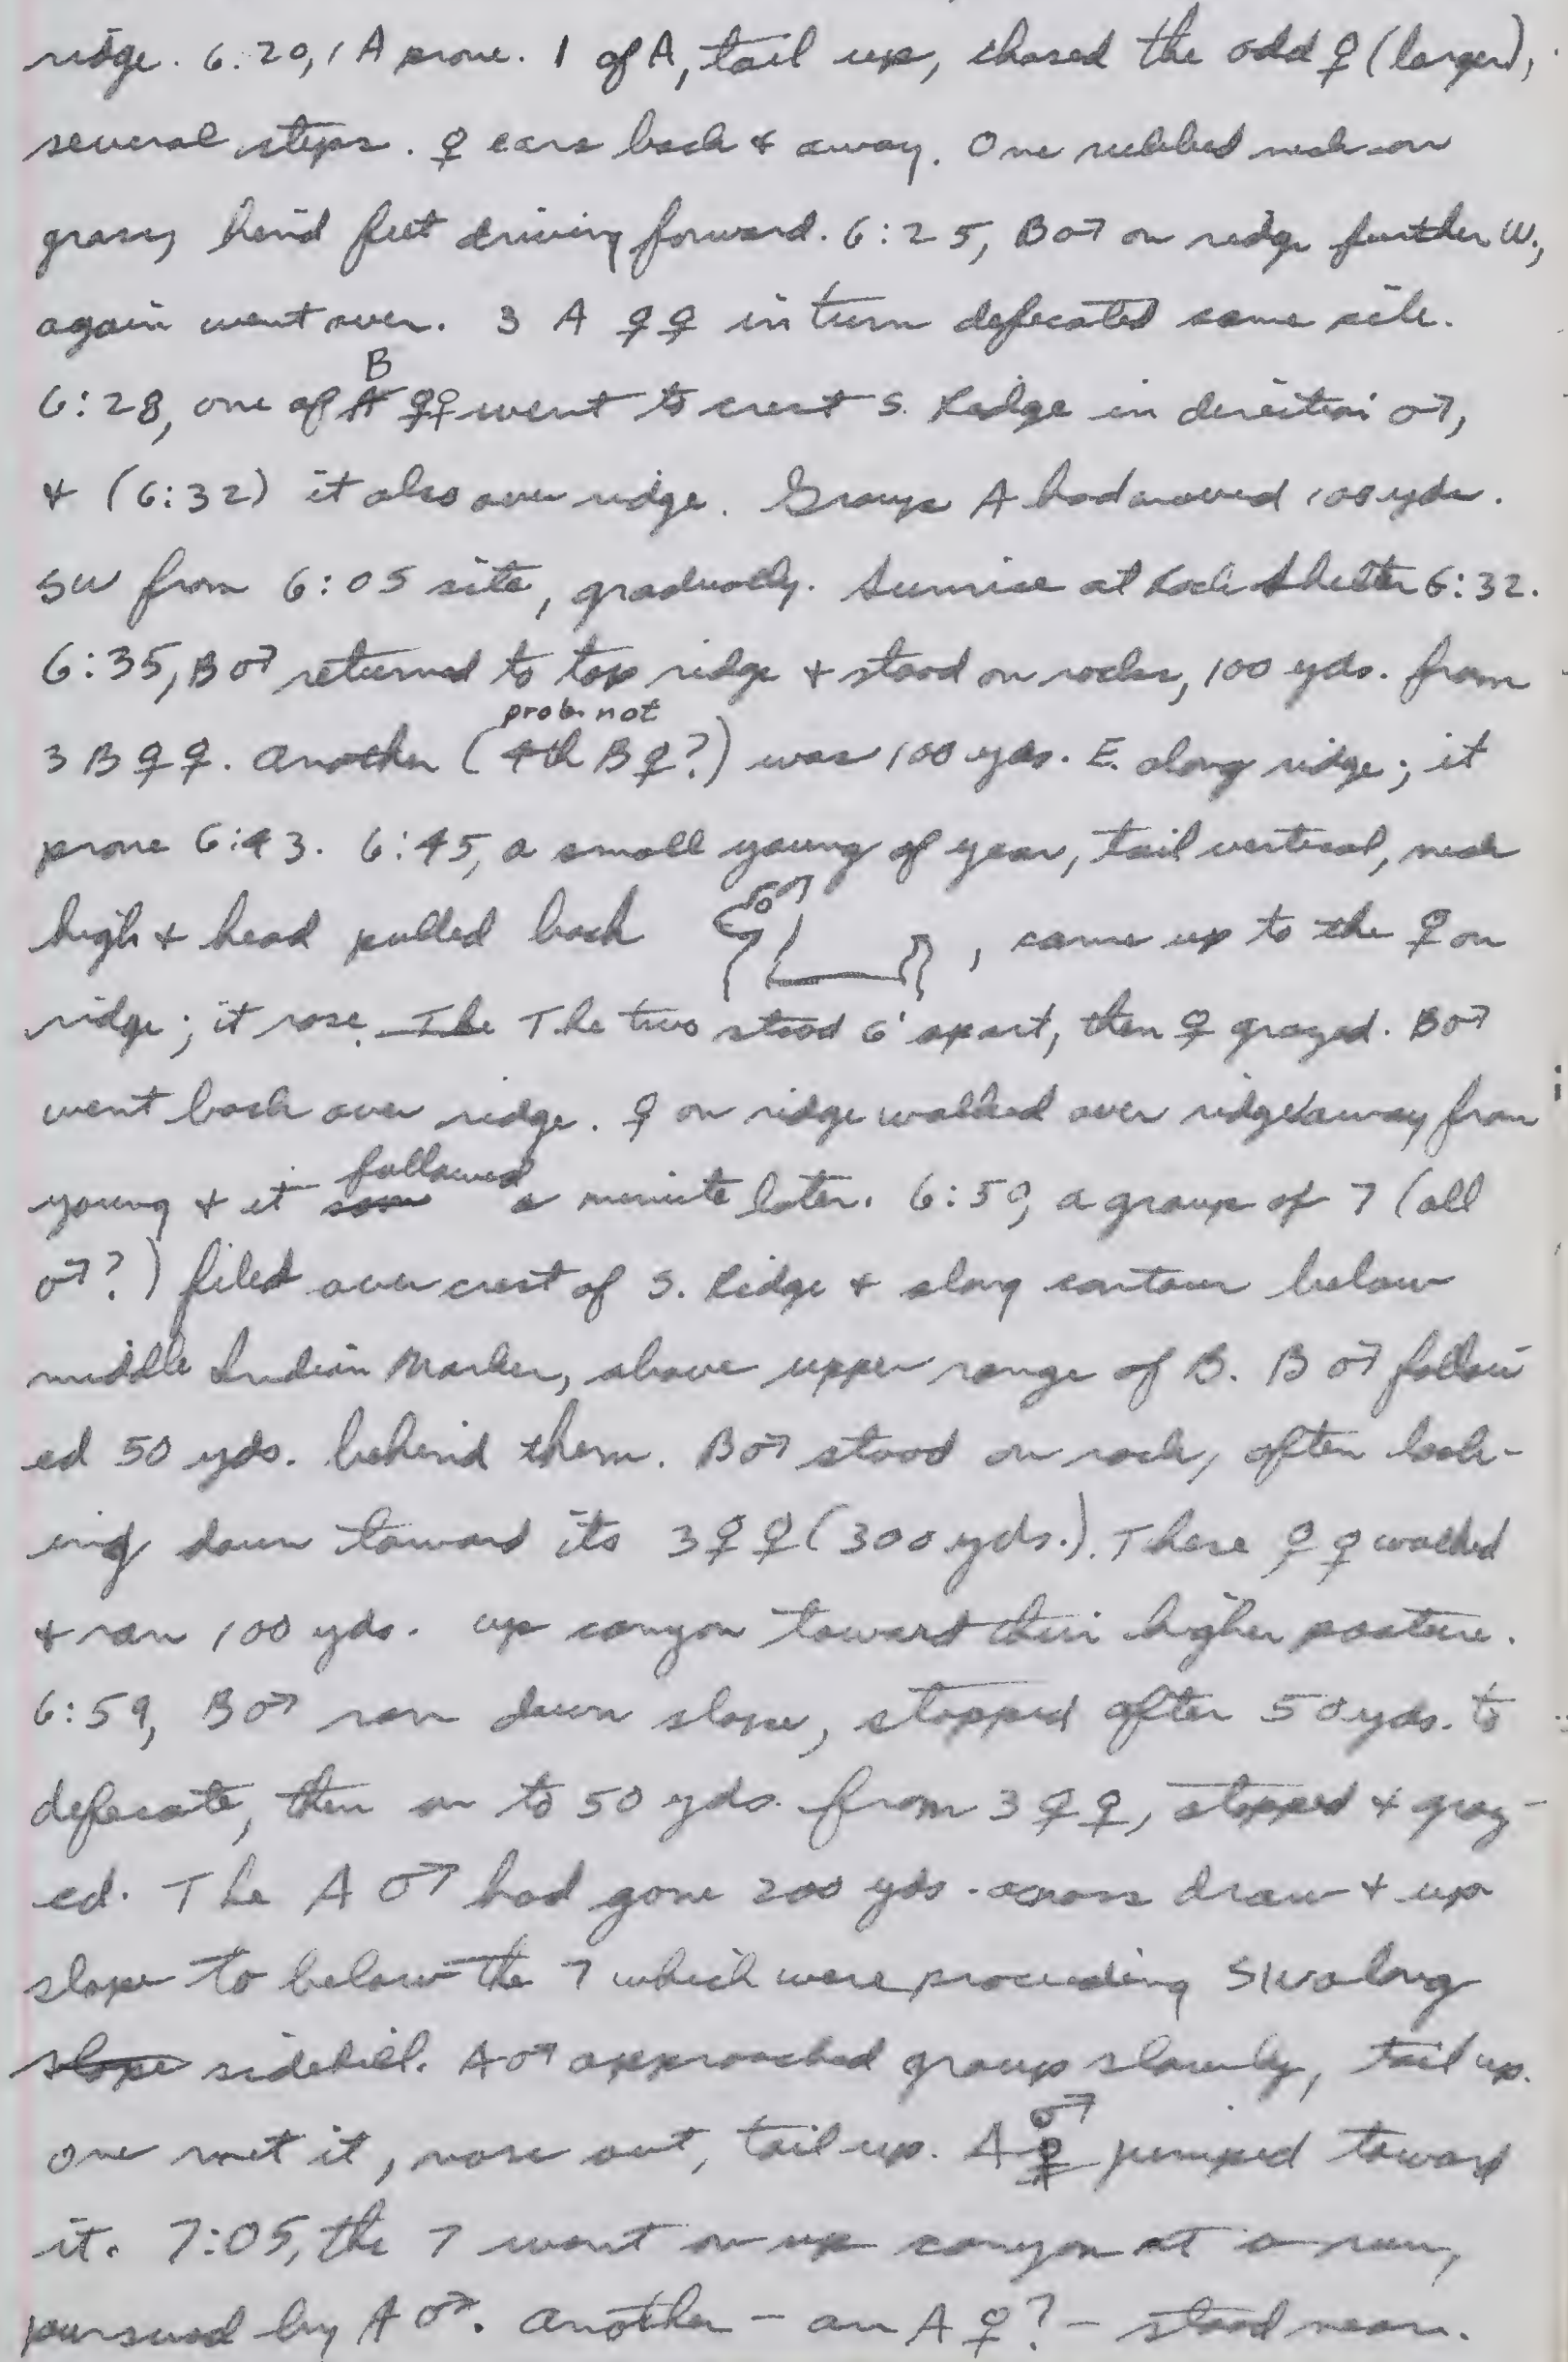 ridge. 6:20, 1 A prone. 1 of A, tail up, chased the odd ♀ (larger),
several steps. ♀ ears back & away. One rubbed neck on
grass, hind feet driving forward. 6:25, B ♂ on ridge further W.,
again went over. 3 A ♀♀ in turn defecated same site.
6:28, one of B ♀♀ went to crest S. Ridge in direction ♂,
& (6:32) it also over ridge. Group A had moved 100 yds.
SW from 6:05 site, gradually. Sunrise at Rock Shelter 6:32.
6:35, B ♂ returned to top ridge & stood on rocks, 100 yds. from
prob. not
3 B ♀♀. Another (4th B ♀?) was 100 yds. E. along ridge; it
prone 6:43. 6:45, a small young of year, tail vertical, neck
high & head pulled back , came up to the ♀ on
ridge; it rose. The The two stood 6' apart, then ♀ grazed. B ♂
went back over ridge. ♀ on ridge walked over ridge away from
young & it followed a minute later. 6:50, a group of 7 (all
♂?) filed over crest of S. Ridge & along contour below
middle Indian Marker, above upper range of B. B ♂ follow
ed 50 yds. behind them. B ♂ stood on rock, often look-
ing down toward its 3 ♀♀ (300 yds.). These ♀♀ walked
& ran 100 yds. up canyon toward their higher pasture.
6:59, B ♂ ran down slope, stopped after 50 yds. to
defecate, then on to 50 yds. from 3 ♀♀, stopped & graz-
ed. The A ♂ had gone 200 yds. across draw & up
slope to below the 7 which were proceeding SW along
slope sidehill. A ♂ approached group slowly, tail up.
One met it, nose out, tail up. A ♂ jumped toward
it. 7:05, the 7 went on up canyon at a run,
pursued by A ♂. Another – an A ♀? – stood near.